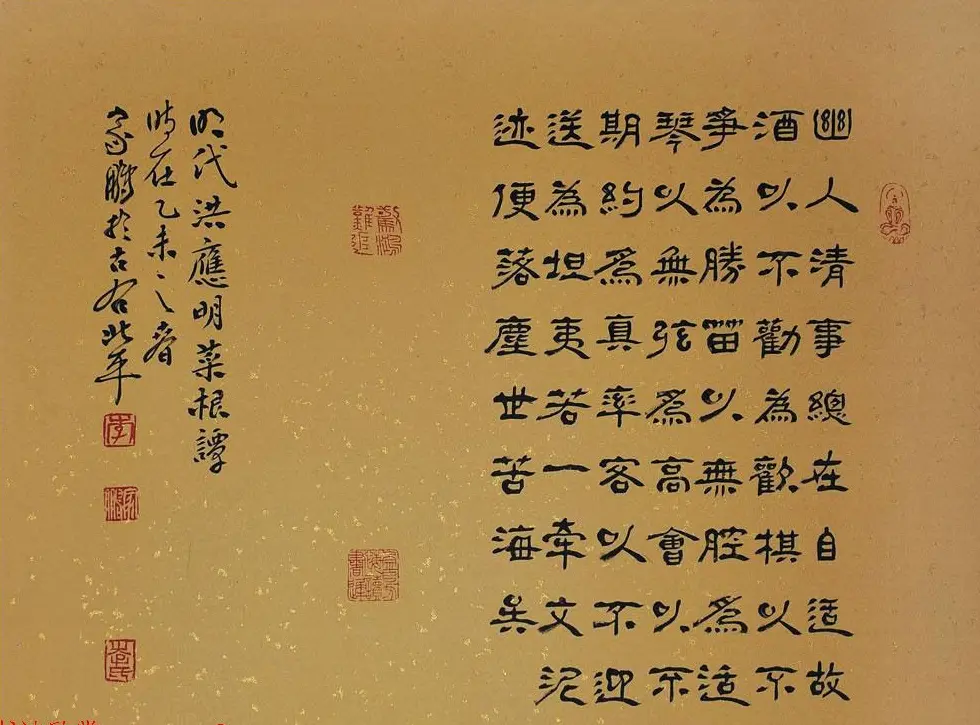 幽人清事總在自适故
酒以不勸為歡棋以不
爭為勝笛以無腔爲适
琴以無弦爲高會以不
期約爲真率客以不迎
送為坦夷若一牽文泥
迹便落塵世苦海矣
明代洪應明菜根譚
時在乙未之春
家鵬於古右北平
李